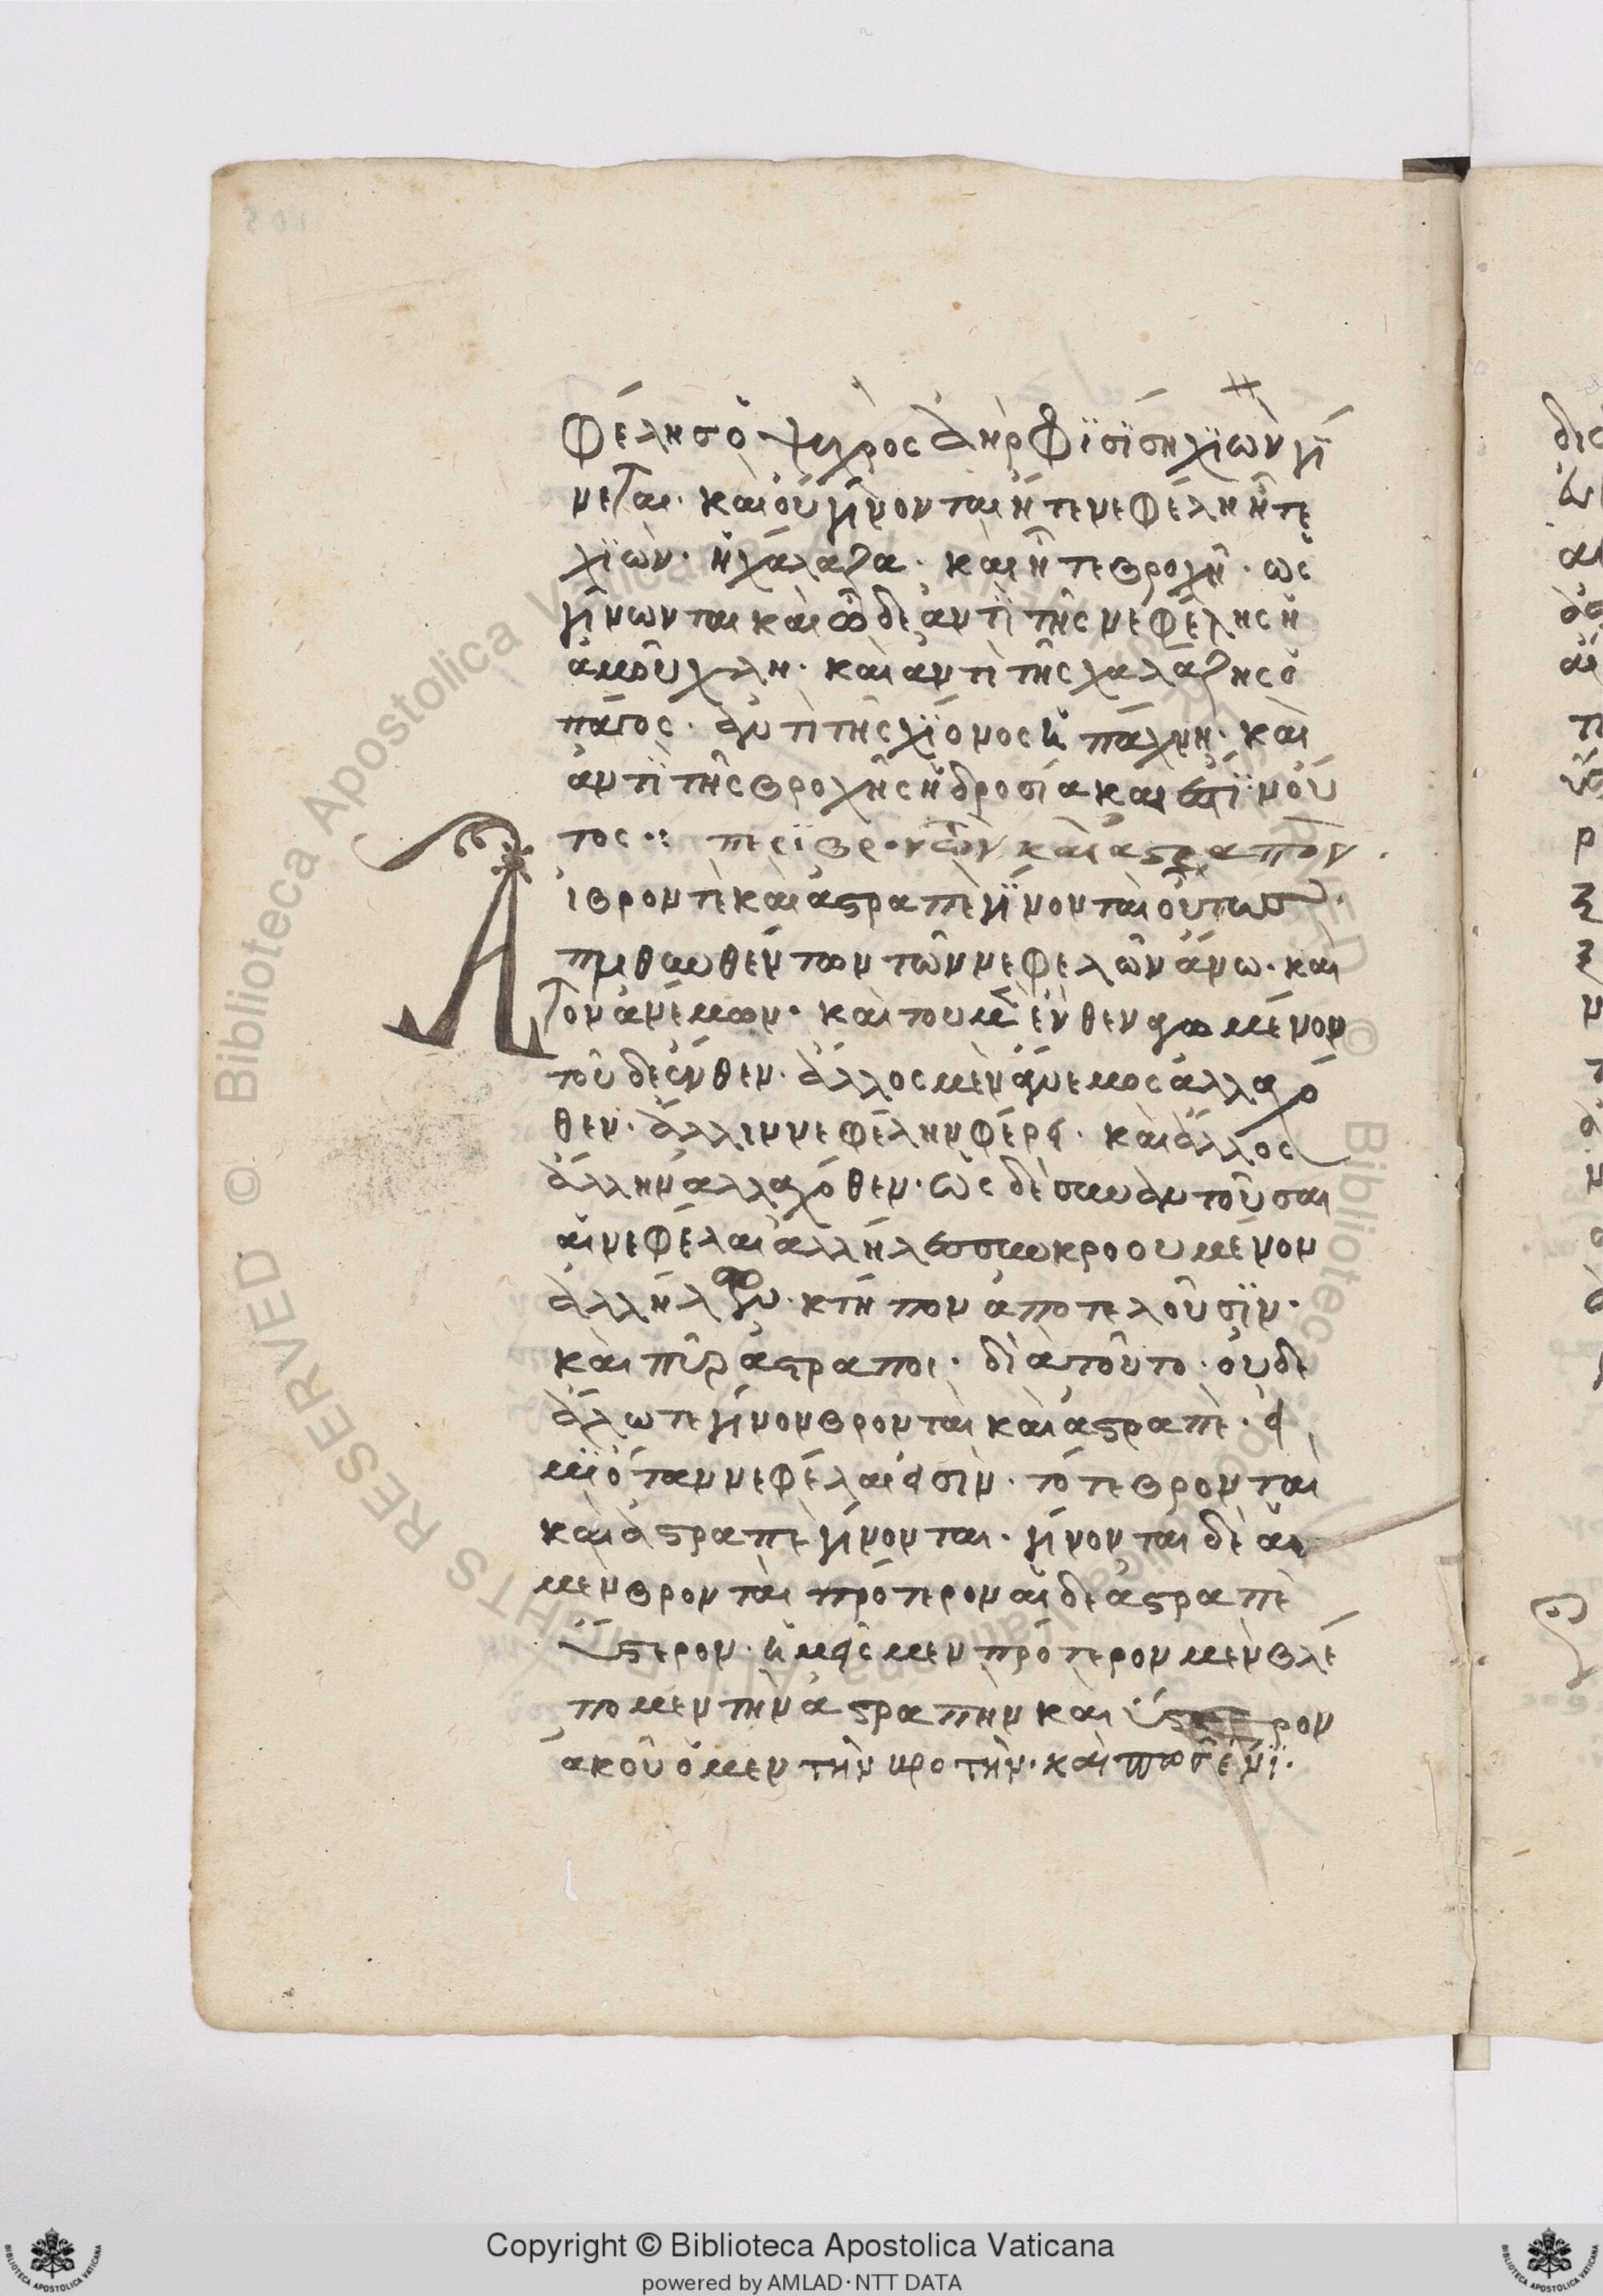 φέλησ ὁ ψυχρος ἀὴρ φϊσϊση χϊὼν γί
νεται· καὶ οὗ γίνονται ἥ τε νεφέλη ἥ τε
χϊὼν· ἡ χάλαζα· καὶ ἥ τε βροχὴ· ὡς
γίνωνται καὶ ὧδε ἀντὶ τῆς νεφέλης ἡ
ἀμοῦχλη· καὶ ἀντὶ τῆς χαλάζης ὁ
πάγος· ἀντὶ τῆς χϊόνος ἡ πάχνη· καὶ
ἀντὶ τῆς βροχῆς ἡ δροσία καὶ νού
τος·: περὶ βροντῶν καὶ ἀστραπῶν·
Αἱ βροντὲ καὶ ἀστραπὲ γίνονται οὕτως·
τῶν νεφελῶν ἄνω· καὶ
τον ἀνέμων· καὶ του μὲν ἔνθεν μένον
τοῦ δὲ ἔνθεν· ἄλλος μὲν ἄνεμος ἀλλαχό
θεν· ἄλλιν νεφέλην φέρει· καὶ ἄλλος
ἄλλην ἀλλαχόθεν· ὡς δὲ συναντοῦσαι
αἱ νεφέλαι ἀλλήλως συνκροουμένον
ἀλλήλων· κτήπον ἀποτελοῦσϊν·
καὶ πῦρ ἀστραποι· διὰ τοῦτο· οὐδὲ
ἄλωτε γίνον βρονταὶ καὶ ἀστραπὲ· εἰ
μϊ ὅταν νεφέλαι εἰσὶν· τότε βρονταὶ
καὶ ἀστραπὲ γίνονται· γίνονται δὲ αἱ
μὲν βρονταὶ πρότερον αἱ δὲ ἀστραπὲ
ὕστερον· ἡμεῖς μεν πρότερον μὲν βλέ
πομεν τὴν ἀστραπην και ὕστερον
ἀκοῦομεν τὴν βροτὴν· καὶ
Copyright © Biblioteca Apostolica Vaticana
powered by AMLAD·NTT DATA